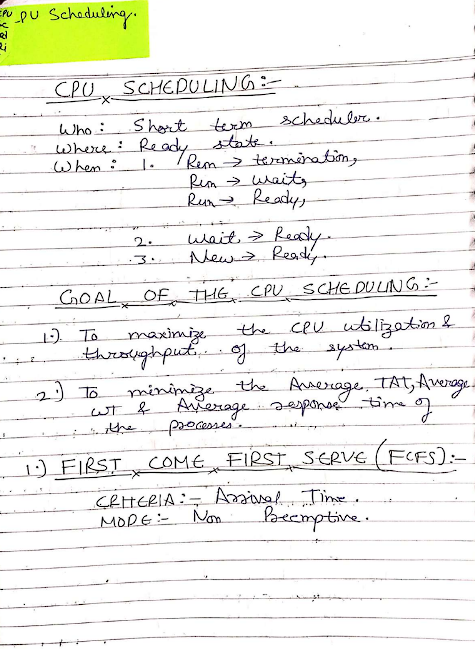 CPU Scheduling.
CPU SCHEDULING:-
Who: Short term scheduler.
Where: Ready state.
When: 1. Run → termination,
Run → wait,
Run → Ready,
2. wait → Ready.
3. New → Ready.
GOAL OF THE CPU SCHEDULING:-
1.) To maximize the CPU utilization &
throughput of the system.
2.) To minimize the Average TAT, Average
WT & Average response time of
the processes.
1.) FIRST COME FIRST SERVE (FCFS):-
CRITERIA:- Arrival Time.
MODE:- Non Preemptive.